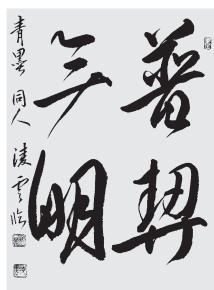 普契
明
青墨 同人 凌雲临